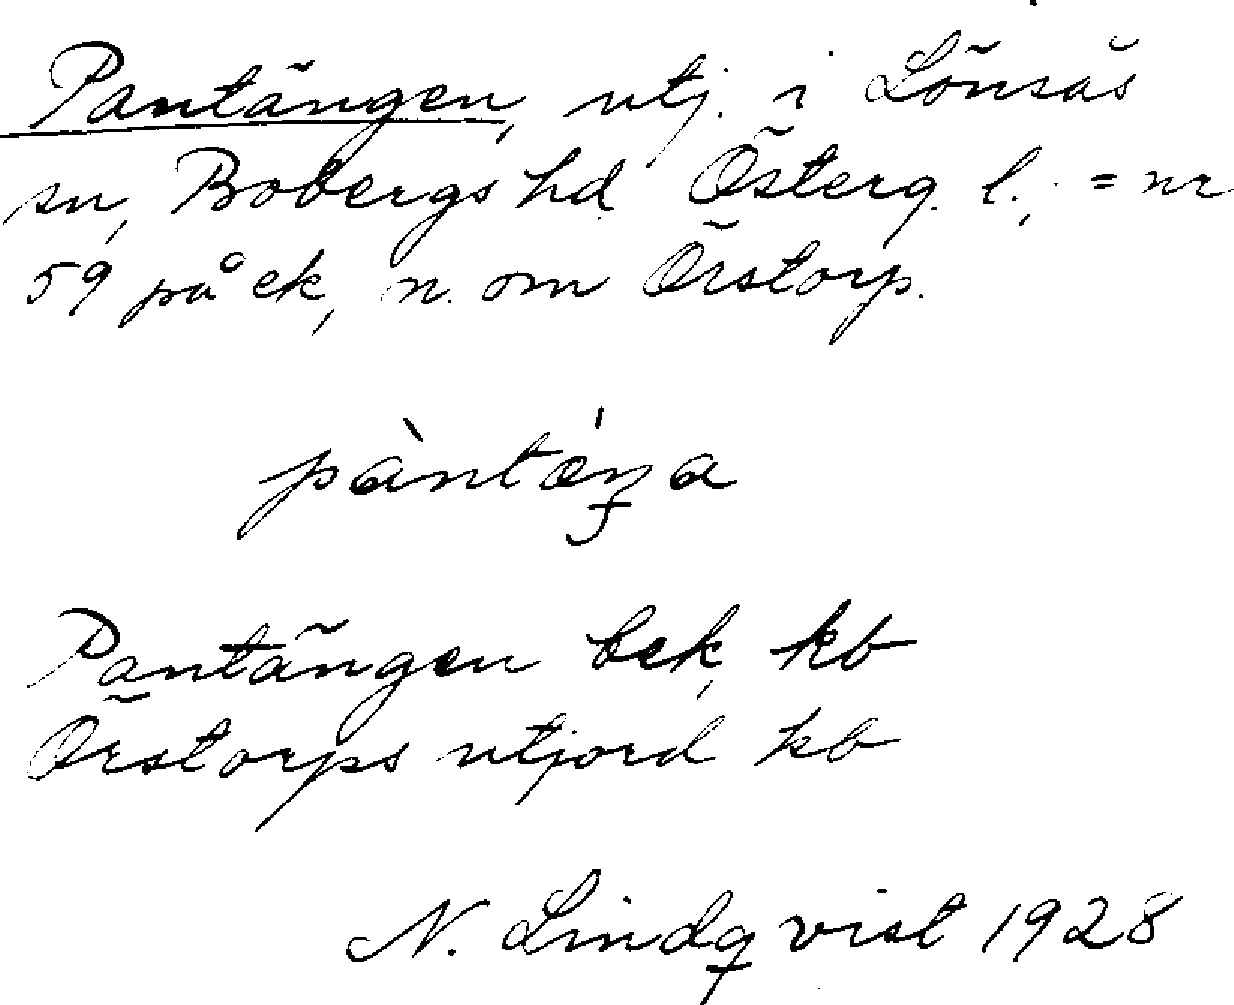 Pantängen, utj. i Lönsås
sn, Bobergs hd Österg. l.; = nr
59 på ek, n. om Örstorp.
pàntǽŋa
Pantängen bek, kb
Örstorps utjord kb
N. Lindqvist 1928